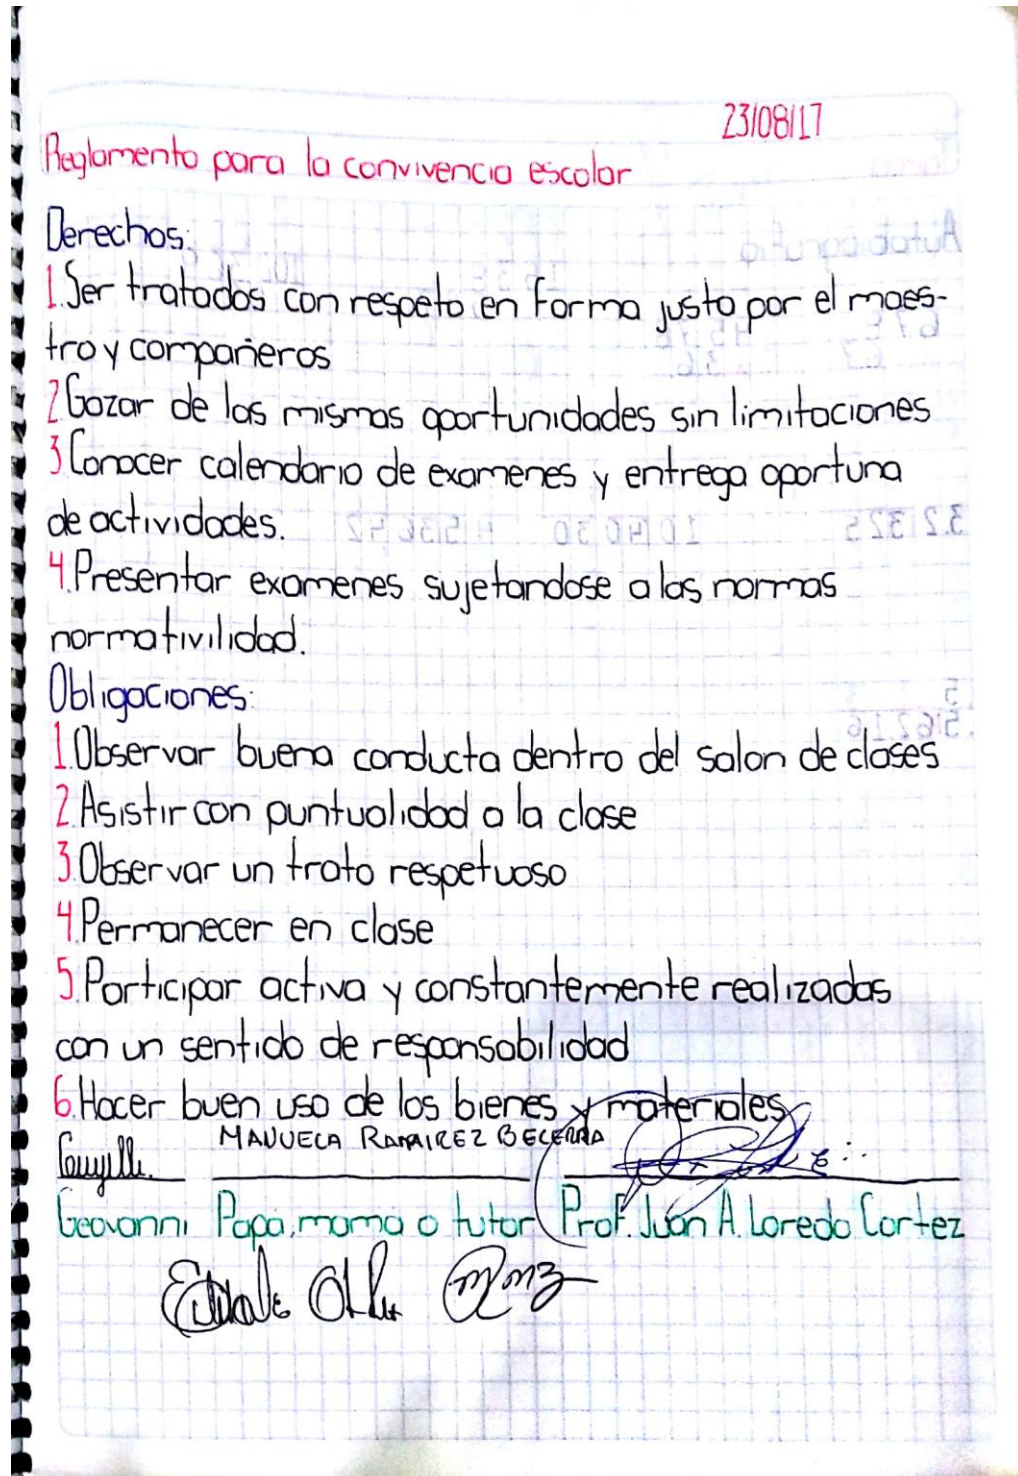 23/08/17
Reglamento para la convivencia escolar
Derechos:
1.Ser tratados con respeto en forma justa por el maes-
tro y compañeros
2 Gozar de las mismas oportunidades sin limitaciones
3 Conocer calendario de examenes y entrega oportuna
de actividades.
4.Presentar examenes sujetandose a las normas
normativilidad.
Obligaciones:
1.Observar buena conducta dentro del salon de clases
2.Asistir con puntualidad a la clase
3.Observar un trato respetuoso
4.Permanecer en clase
5.Participar activa y constantemente realizadas
con un sentido de responsabilidad
6.Hacer buen uso de los bienes y materiales
MANUELA RAMIREZ BECERRA
Geovanni Papa, mama o tutor Prof. Juan A. Loredo Cortez